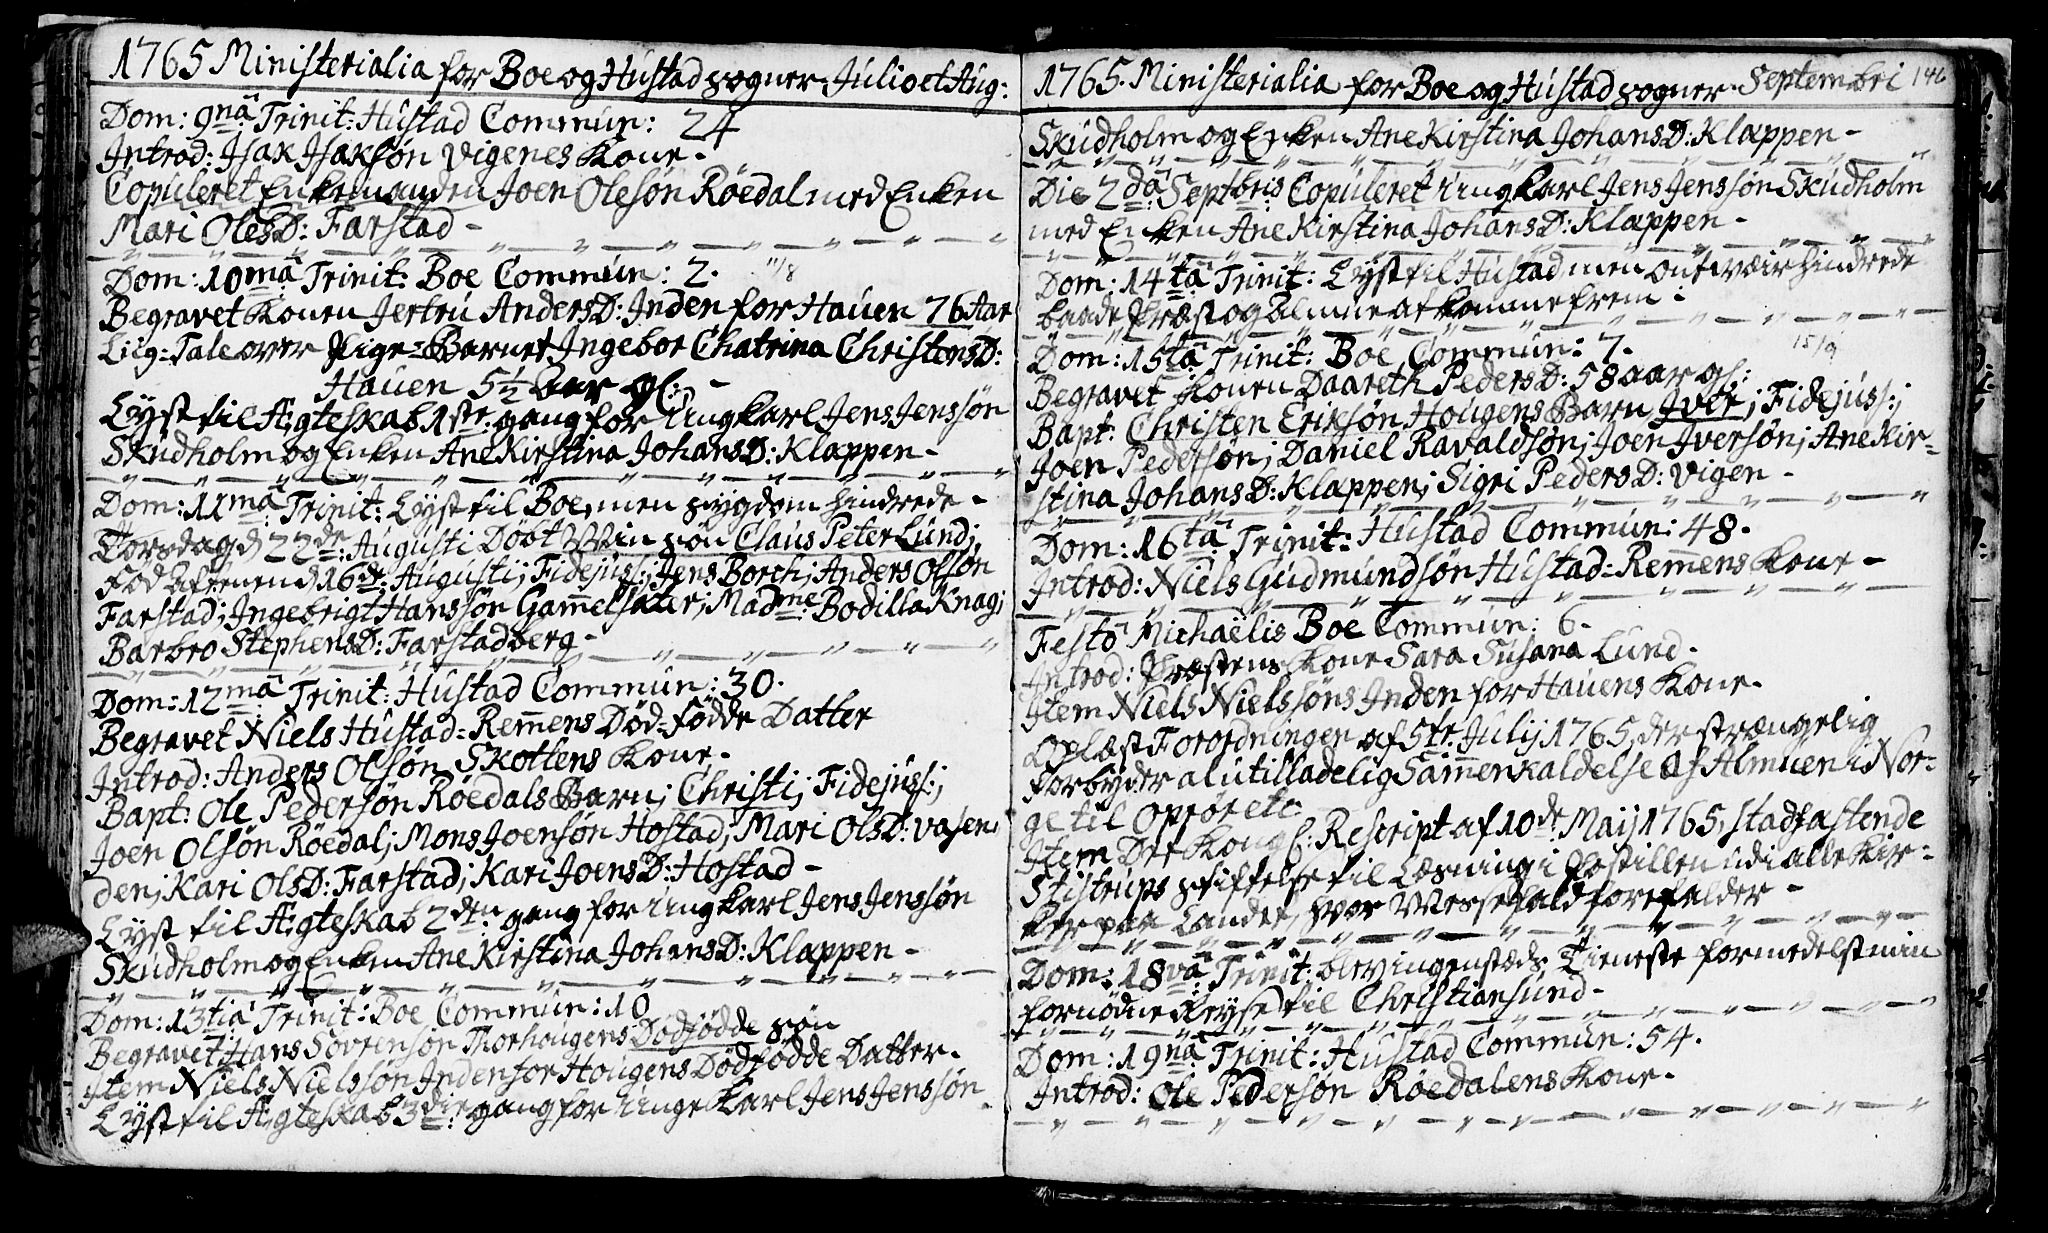 1765 Ministerialia for Boe og Hustad sogner Julio et Aug:
Dom: 9nâ Trinit: Hustad Commun: 24
Introd: Isak Isaksøn Vigenes Kone-
Copuleret Enkemanden Joen Olesøn Røedal med Enken
Mari OlesD: Farstad-
Dom: 10mâ Trinit: Boe Commun: 2. 11/8
Begravet Konen Jertru AndersD: Inden for Hauen 76 Aar
Liig-Tale over Pige-Barnet Ingebor Chatrina ChristensD:
Hauen 5½ Aar gl: -
Lyst til Ægteskab 1ste gang for Ungkarl Jens Jenssøn
Skudholm og Enken Ane Kirstina JohansD: Klappen-
Dom: 11mâ Trinit: Lyst til Boe, men sygdom hindrede-
Torsdag d 22de: Augusti Døbt Min søn Claus Peter Lund;
fød Aftenen d 16de: Augusti; Fidejuss:; Jens Borch; Anders Olsøn
Farstad; Ingebrigt Hanssøn Gam̅elsæter; Madme Bodilla Knag;
Barbro StephensD: Farstadberg-
Dom: 12mâ Trinit: Hustad Commun: 30.
Begravet Niels Hustad-Rem̅ens Død-fødde Datter
Introd: Anders Olsøn Skottens Kone-
Bapt: Ole Pedersøn Røedals Barn; Christi; Fidejuss:;
Joen Olsøn Røedal; Mons Joensøn Hostad; Mari OlsD: Vasen-
den; Kari OlsD: Farstad; Kari JoensD: Hostad-
Lyst til Ægteskab 2den gang for Ungkarl Jens Jenssøn
Skudholm og Enken Ane Kirstina JohansD: Klappen-
Dom: 13tiâ Trinit: Boe Commun: 10
Begravet Hans Sørensøn Thorhougens Dødfødde søn
Item Niels Nielssøn Inden for Hougens Dødfødde Datter.
Lyst til Ægteskab 3die gang for Unge Karl Jens Jenssøn
1765. Ministerialia for Boe og Hustad sogner Septembri 146
Skudholm og Enken Ane Kirstina JohansD: Klappen-
Die 2dâ Septbris Copuleret Ungkarl Jens Jenssøn Skudholm
med Enken Ane Kirstina JohansD: Klappen-
Dom: 14tâ Trinit: Lyst til Hustad men ont veir hindrede
baade Præst og Almue at komme frem:
Dom: 15tâ Trinit: Boe Commun: 7. 15/9
Begravet Konen Daareth PedersD: 58 aar gl:
Bapt: Christen Eriksøn Hougens Barn Iver; Fidejuss:;
Joen Pedersøn; Daniel Ravaldsøn; Joen Iversøn; Ane Kir-
stina JohansD: Klappen; Sigri PedersD: Vigen-
Dom: 16tâ Trinit: Hustad Commun: 48.
Introd: Niels Gudmundsøn Hustad-Rem̅ens Kone-
Festô Michaëlis Boe Commun: 6.
Introd: Præstens Kone Sara Susana Lund.
Item Niels Nielssøns Inden for Hauens Kone.
Oplæst Forordningen af 5te. Julij 1765, der strængelig
forbyder al utilladelig Sam̅enkaldelse af Almuen i Nor-
ge til Oprør etc
Item Det Kongl: Rescript af 10de Maij 1765, stadfæstende
Stistrups stiftelse til Læsning i Postillen udi alle Kir-
ker paa Landet, hvor Messefald forefalder-
Dom: 18vâ Trinit: blev ingensteds Tieneste formedelst min
fornødne Reyse til Christiansund-
Dom: 19nâ Trinit: Hustad Commun: 54.
Introd: Ole Pedersøn Røedalens Kone.